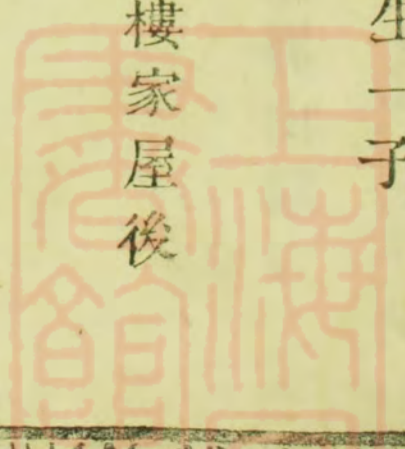 生一子
樓家屋後
上海
書館